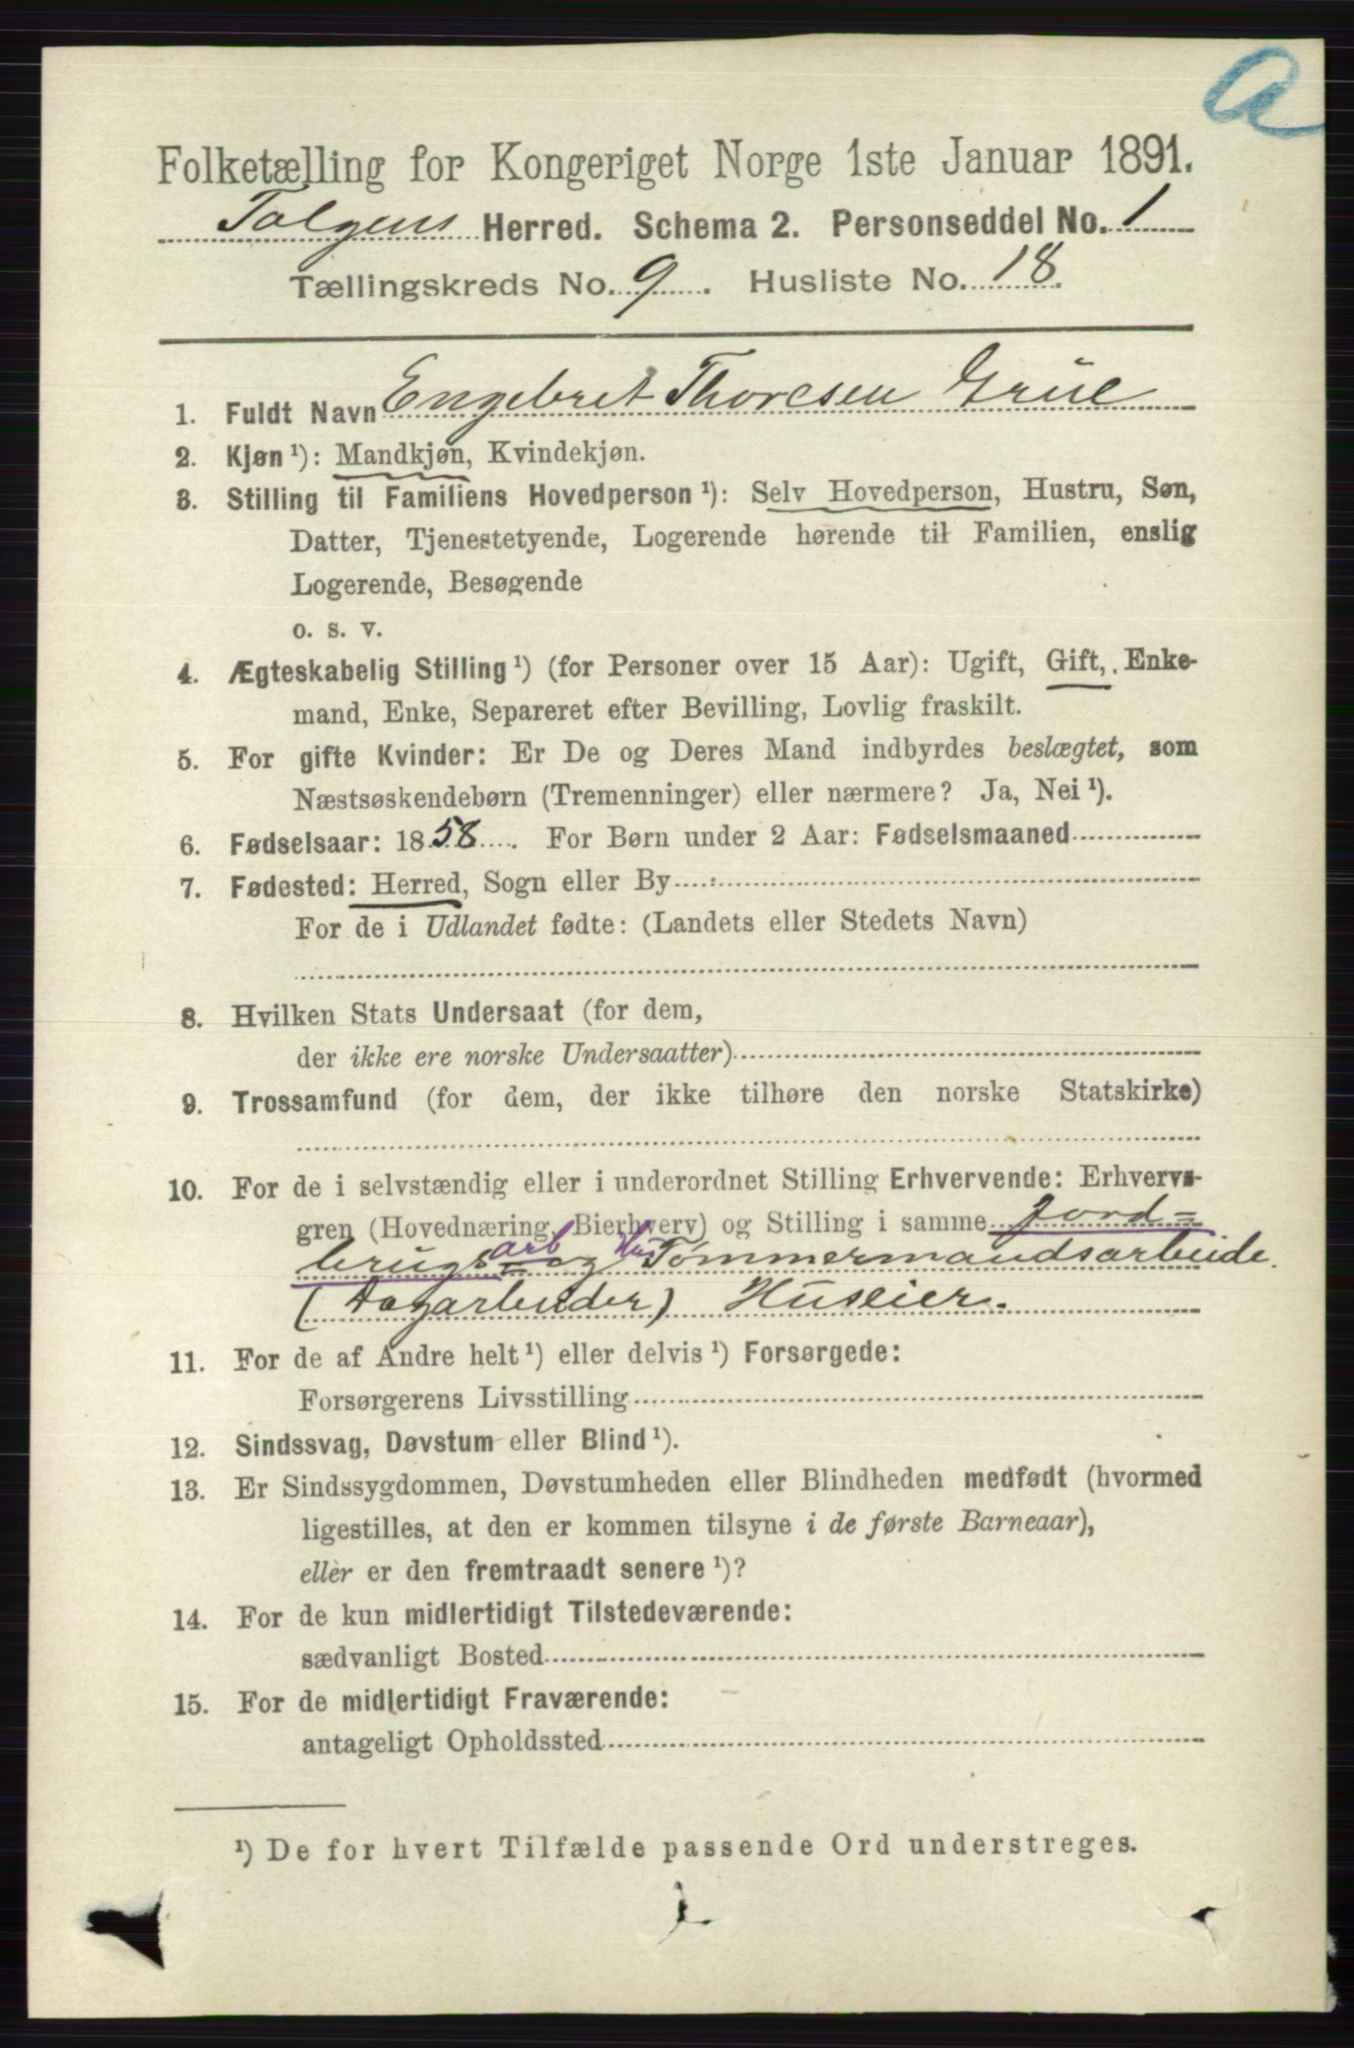 a
Folketælling for Kongeriget Norge 1ste Januar 1891.
Tolgens Herred. Schema 2. Personseddel No. 1
Tællingskreds No. 9. Husliste No. 18.
1. Fuldt Navn Engebret Thoresen Grue
2. Kjøn ¹): Mandkjøn, Kvindekjøn.
3. Stilling til Familiens Hovedperson ¹): Selv Hovedperson, Hustru, Søn,
Datter, Tjenestetyende, Logerende hørende til Familien, enslig
Logerende, Besøgende
o. s. v.
4. Ægteskabelig Stilling ¹) (for Personer over 15 Aar): Ugift, Gift, Enke-
mand, Enke, Separeret efter Bevilling, Lovlig fraskilt.
5. For gifte Kvinder: Er De og Deres Mand indbyrdes beslægtet, som
Næstsøskendebørn (Tremenninger) eller nærmere? Ja, Nei ¹).
6. Fødselsaar: 1858. For Børn under 2 Aar: Fødselsmaaned
7. Fødested: Herred, Sogn eller By
For de i Udlandet fødte: (Landets eller Stedets Navn)
8. Hvilken Stats Undersaat (for dem,
der ikke ere norske Undersaatter)
9. Trossamfund (for dem, der ikke tilhøre den norske Statskirke)
10. For de i selvstændig eller i underordnet Stilling Erhvervende: Erhvervs-
gren (Hovednæring, Bierhverv) og Stilling i samme Jord=
arb Hus
brugs= og Tømmermandsarbeide.
(Dagarbeider) Huseier.
11. For de af Andre helt ¹) eller delvis ¹) Forsørgede:
Forsørgerens Livsstilling
12. Sindssvag, Døvstum eller Blind ¹).
13. Er Sindssygdommen, Døvstumheden eller Blindheden medfødt (hvormed
ligestilles, at den er kommen tilsyne i de første Barneaar),
eller er den fremtraadt senere ¹)?
14. For de kun midlertidigt Tilstedeværende:
sædvanligt Bosted
15. For de midlertidigt Fraværende:
antageligt Opholdssted
¹) De for hvert Tilfælde passende Ord understreges.